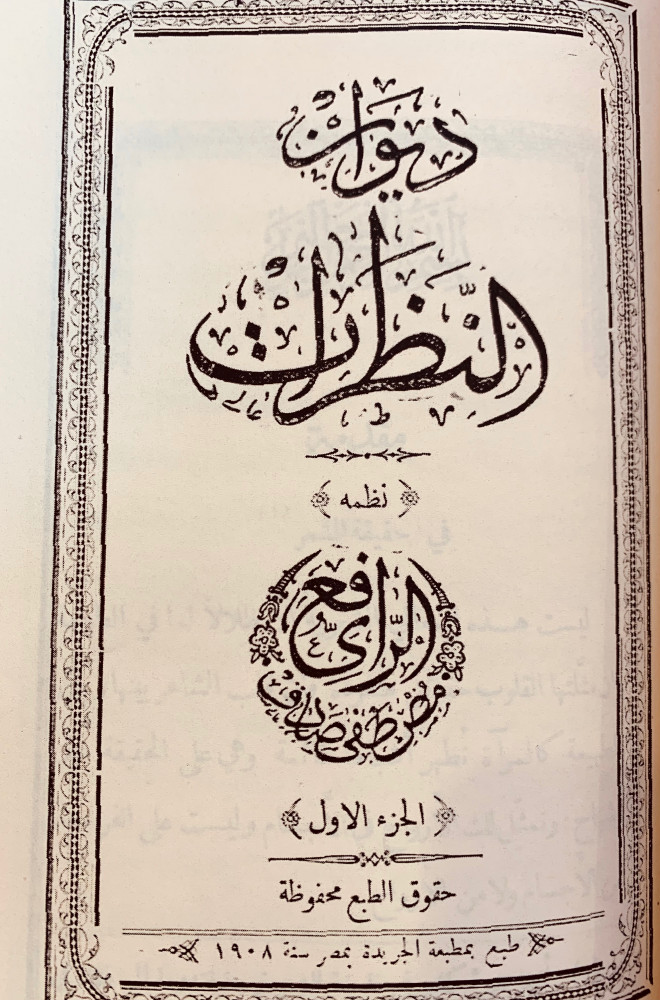 ديوان
النَّظرات
نظمه
الرَّافعي
مصطفى صادق
الجزء الاول
حقوق الطبع محفوظة
طبع بمطبعة الجريدة بمصر سنة ١٩٠٨